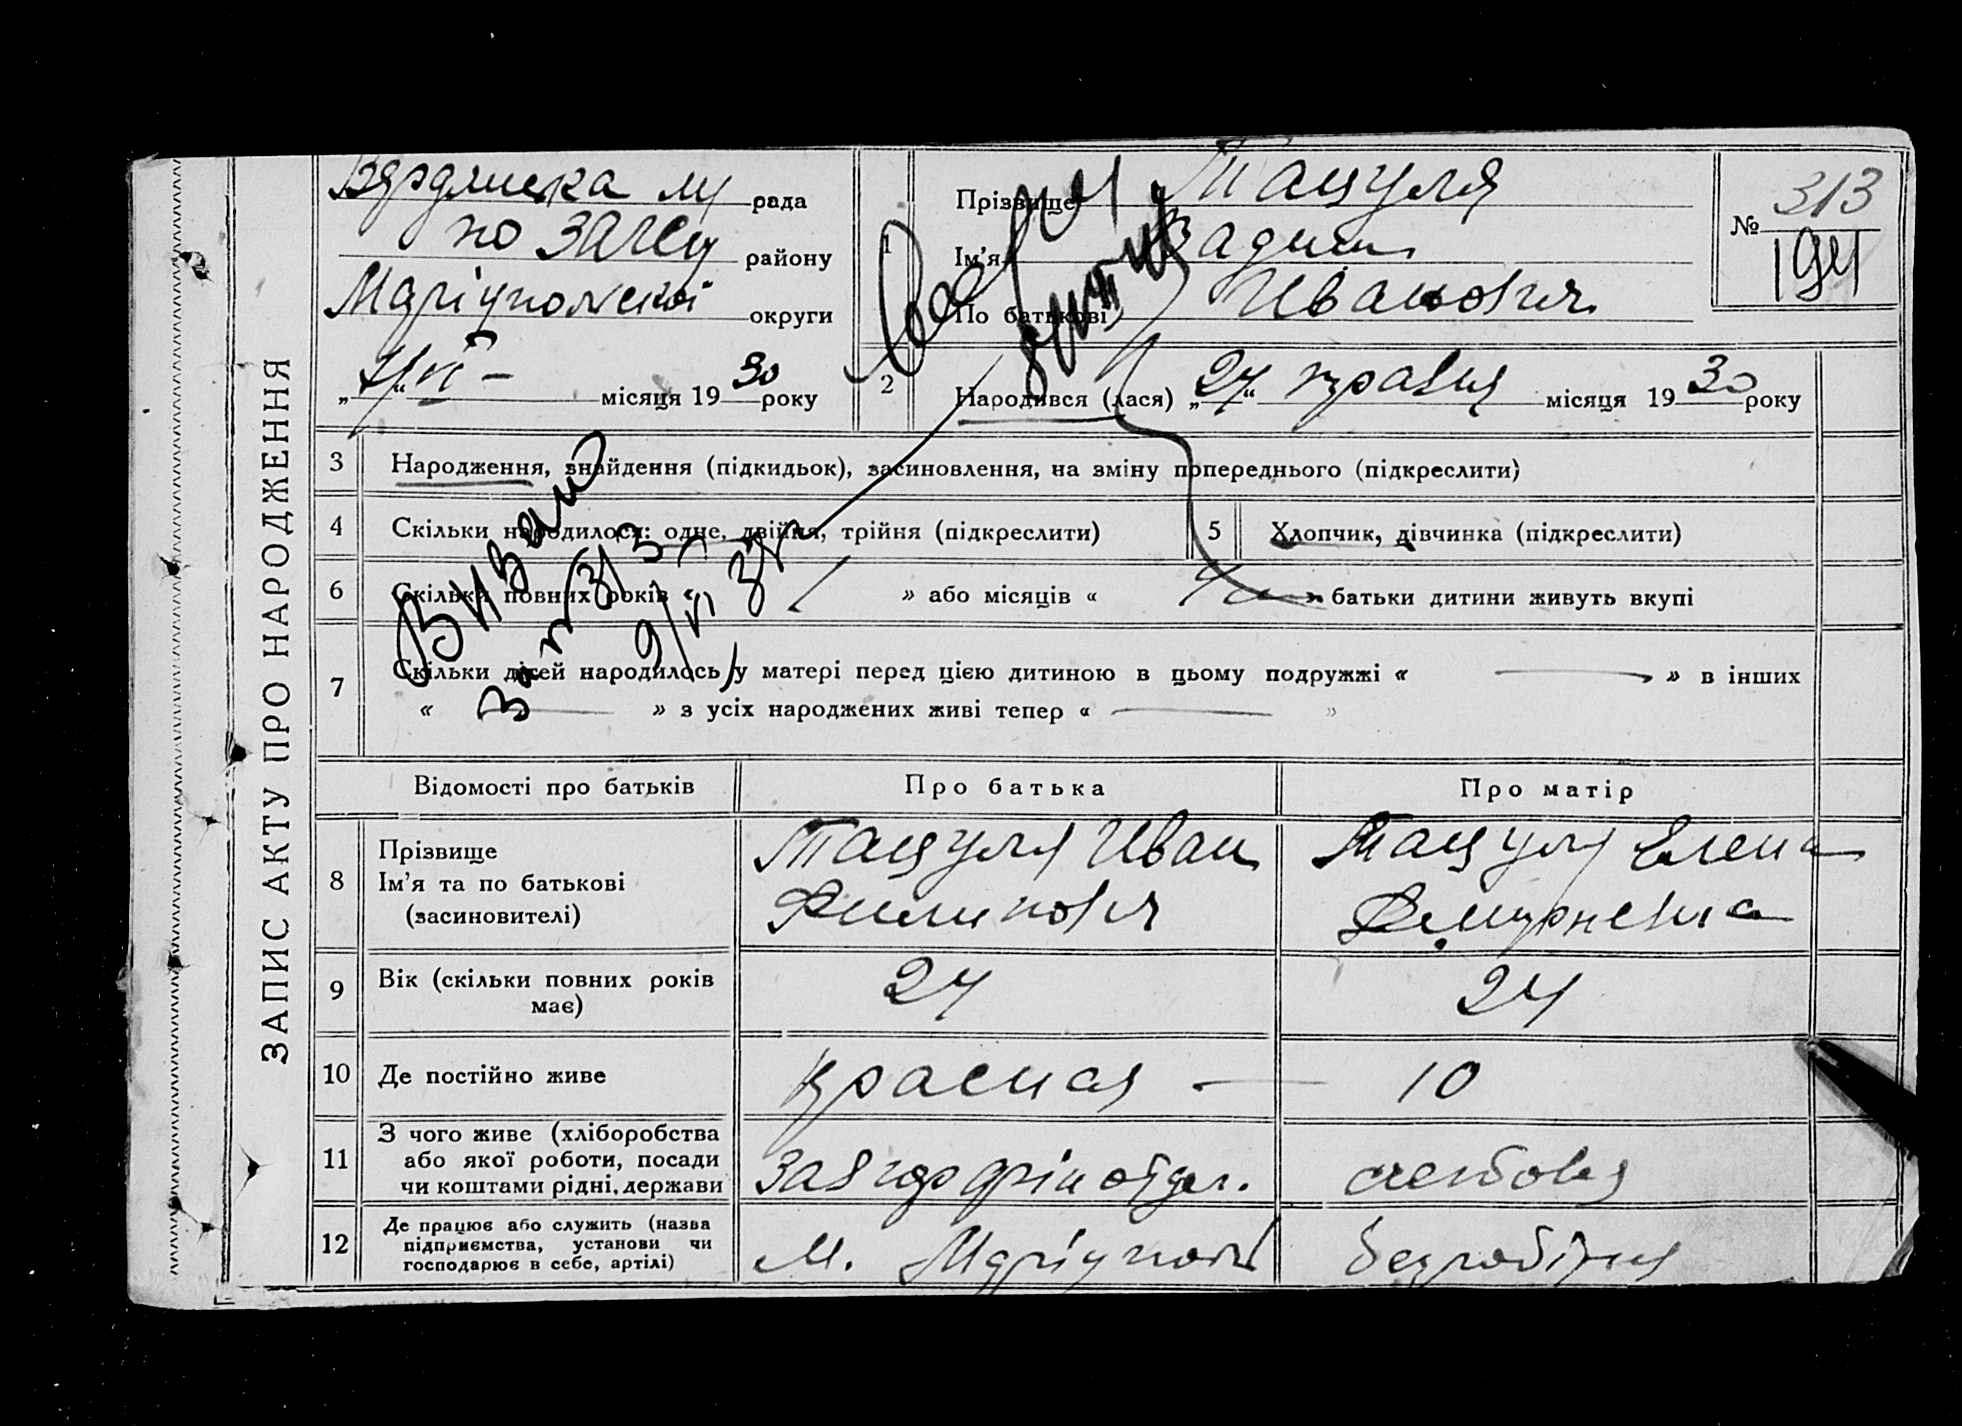 ЗАПИС АКТУ ПРО НАРОДЖЕННЯ
рада
по ЗАГСу району
Маріупольської округи
„ “ VI – місяця 1930 року
1
Прізвище Тацуля
Ім’я Вадим
По батькові Иванович
№ 313
194
2 Народився (лася) „24“ травня місяця 1930 року
3 Народження, знайдення (підкидьок), засиновлення, на зміну попереднього (підкреслити)
4 Скільки народилося: одне, двійня, трійня (підкреслити)
5 Хлопчик, дівчинка (підкреслити)
6 Скільки повних років « 1 » або місяців « » батьки дитини живуть вкупі
7 Скільки дітей народилось у матері перед цією дитиною в цьому подружжі « — » в інших
« — » з усіх народжених живі тепер « — »
за № 313
9/VI 30 г
Відомості про батьків Про батька Про матір
8 Прізвище
Ім’я та по батькові
(засиновителі)
Тацуля Иван
Филипович
Тацуля Елена
9 Вік (скільки повних років
має)
24
24
10 Де постійно живе
Красная —
10
11 З чого живе (хліборобства
або якої роботи, посади
чи коштами рідні, держави
12 Де працює або служить (назва
підприємства, установи чи
господарює в себе, артілі)
м. Маріуполь
безробітня